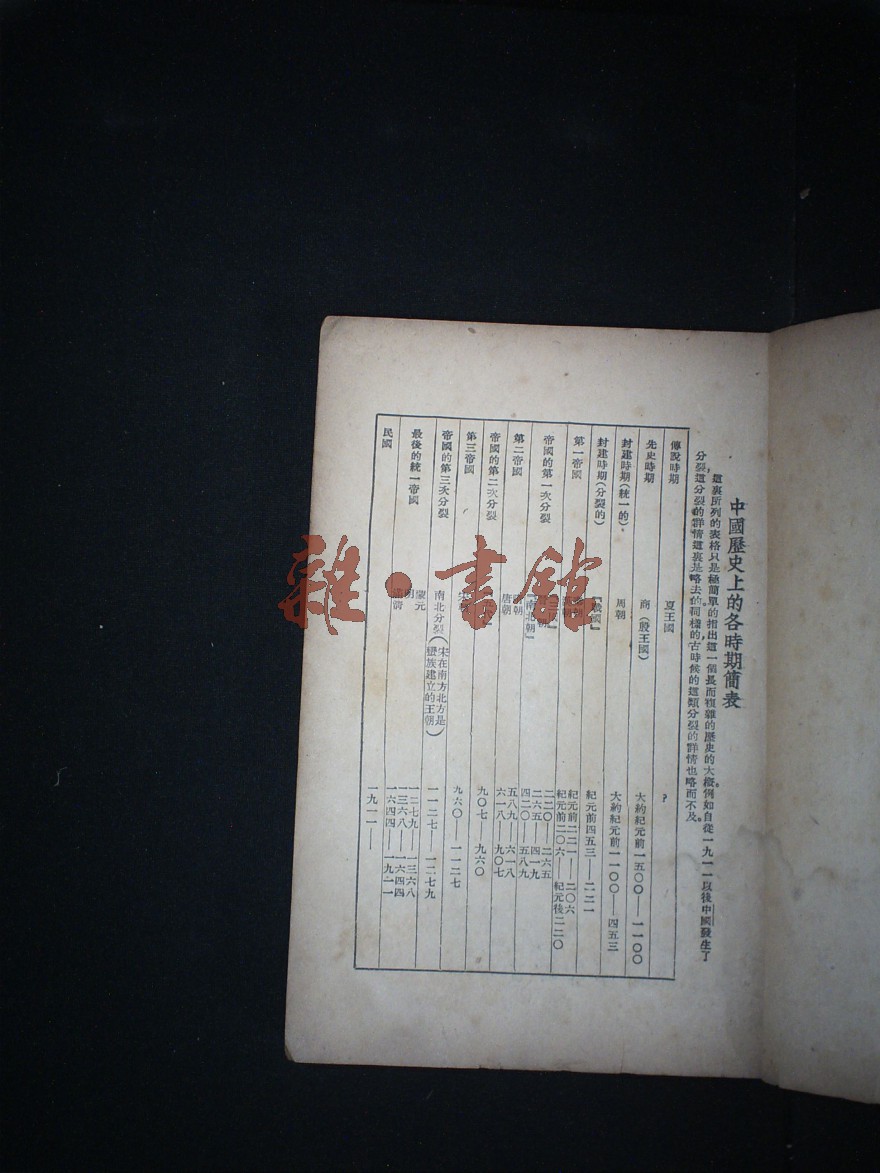 中國歷史上的各時期簡表
這裏所列的表格只是極簡單的指出這一個長而複雜的歷史的大概。例如自從一九一一以後中國發生了
分裂,這分裂的詳情這裏是略去的。同樣的古時候的這類分裂的詳情也略而不及。
傳說時期 夏王國 ?
先史時期 商(殷王國) 大約紀元前一五〇〇——一一〇〇
封建時期(統一的) 周朝 大約紀元前一一〇〇——四五三
封建時期(分裂的) 【戰國】 紀元前四五三——二二一
第一帝國 紀元前二二一——二〇六
紀元前二〇六——紀元後二二〇
帝國的第一次分裂 二二〇——二六五
二六五——四一九
【南北朝】 四二〇——五八九
第二帝國 五八九——六一八
唐朝 六一八——九〇七
帝國的第二次分裂 九〇七——九六〇
第三帝國 宋朝 九六〇——一一二七
帝國的第三次分裂 南北分裂(宋在南方北方是蠻族建立的王朝) 一一二七——一二七九
最後的統一帝國 蒙元 一二七九——一三六八
明 一三六八——一六四四
滿清 一六四四——一九一一
民國 一九一一——
雜·書館